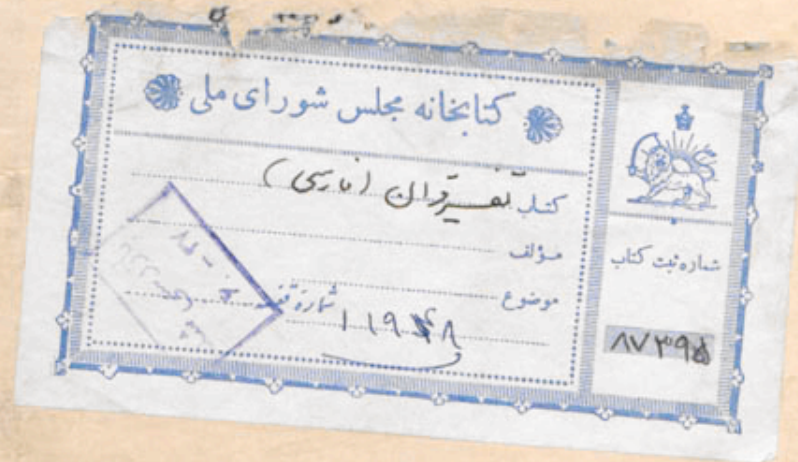 کتابخانه مجلس شورای ملی
کتاب تفسیر قران (فارسی)
مؤلف
موضوع
شماره قفسه
۱۱۹۴۸
شماره ثبت کتاب
۸۷۳۹۵